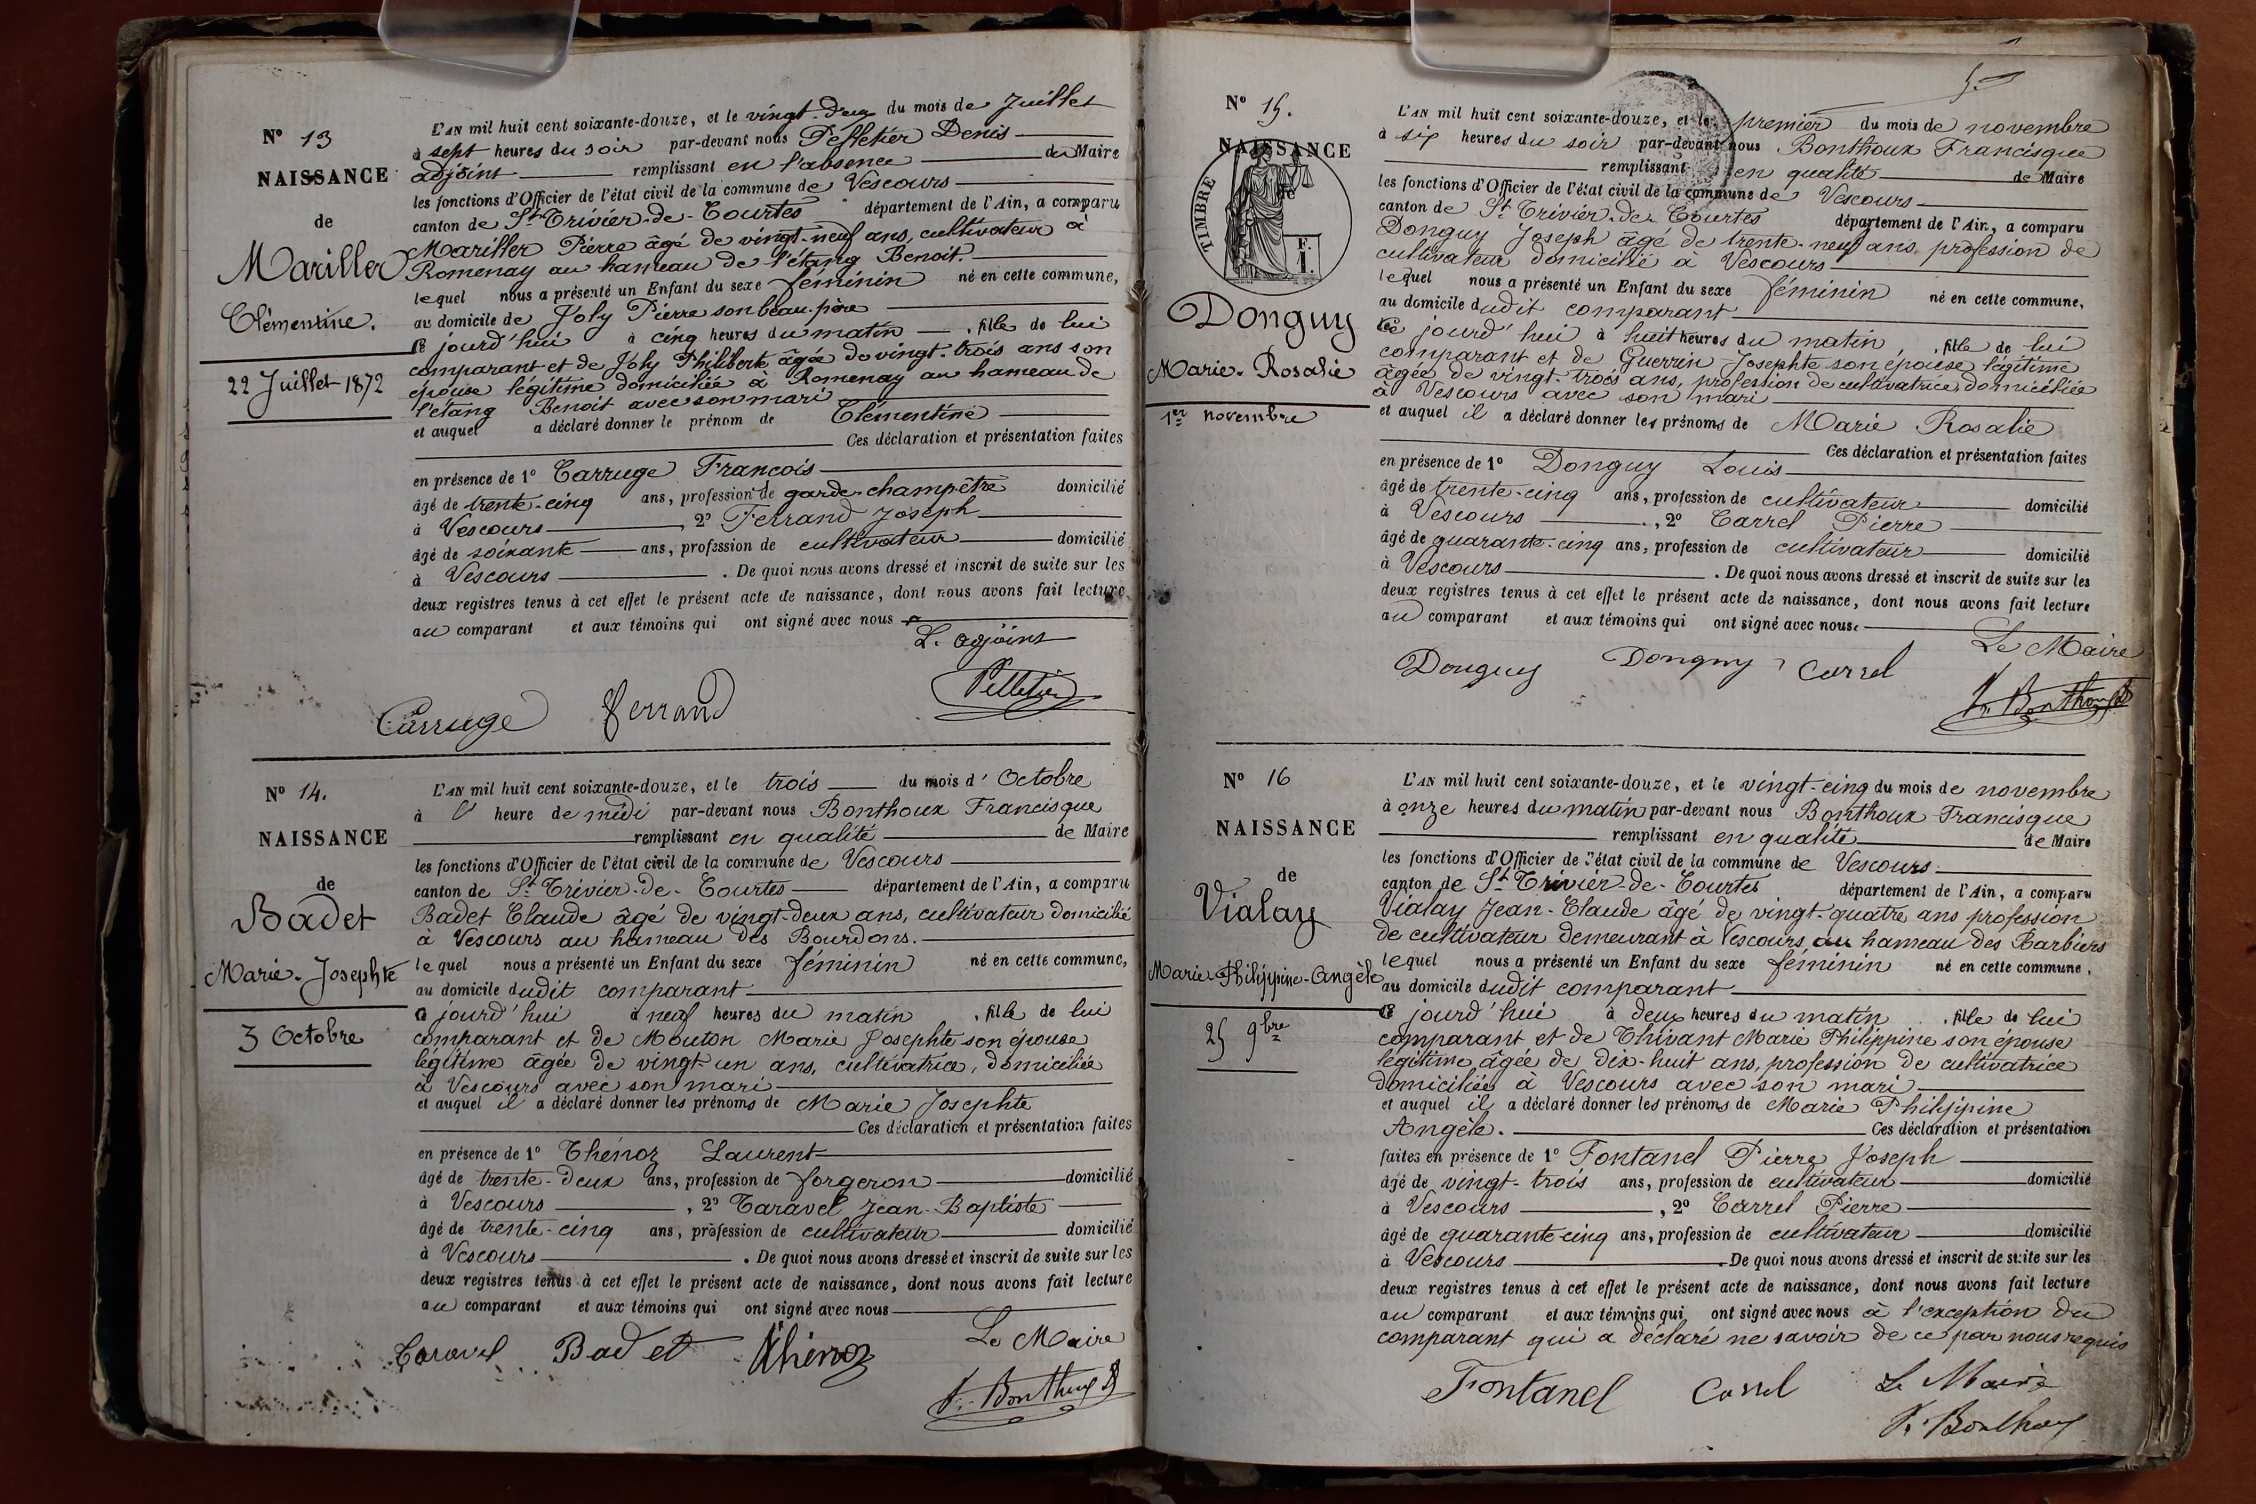 N° 13
NAISSANCE
de
Mariller
Clémentine.
22 Juillet 1872
L'AN mil huit cent soixante-douze, et le vingt-deux du mois de Juillet
à sept heures du soir par-devant nous Pelletier Denis
adjoint remplissant en l'absence du Maire
les fonctions d'Officier de l'état civil de la commune de Vescours
canton de St Trivier-de-Courtes département de l'Ain, a comparu
Mariller Pierre âgé de vingt-neuf ans, cultivateur à
Romenay au hameau de l'étang Benoit.
lequel nous a présenté un Enfant du sexe féminin né en cette commune,
au domicile de Joly Pierre son beau-père
ce jourd'hui à cinq heures du matin , fille de lui
comparant et de Joly Philiberte âgée de vingt-trois ans son
épouse légitime domiciliée à Romenay au hameau de
l'étang Benoit avec son mari
et auquel a déclaré donner le prénom de Clémentine
Ces déclaration et présentation faites
en présence de 1° Carruge François
âgé de trente-cinq ans, profession de garde-champêtre domicilié
à Vescours , 2° Ferrand Joseph
âgé de soixante ans, profession de cultivateur domicilié
à Vescours . De quoi nous avons dressé et inscrit de suite sur les
deux registres tenus à cet effet le présent acte de naissance, dont nous avons fait lecture
au comparant et aux témoins qui ont signé avec nous
L. adjoint
Carruge Ferrand Pelletier
N° 14.
NAISSANCE
de
Badet
Marie-Josephte
3 Octobre
L'AN mil huit cent soixante-douze, et le trois du mois d' Octobre
à l' heure de midi par-devant nous Bonthoux Francisque
remplissant en qualité de Maire
les fonctions d'Officier de l'état civil de la commune de Vescours
canton de St Trivier-de-Courtes département de l'Ain, a comparu
Badet Claude âgé de vingt-deux ans, cultivateur domicilié
à Vescours au hameau des Bourdons.
lequel nous a présenté un Enfant du sexe féminin né en cette commune,
au domicile dudit comparant
ce jourd'hui à neuf heures du matin , fille de lui
comparant et de Mouton Marie Josephte son épouse
légitime âgée de vingt-un ans, cultivatrice, domiciliée
à Vescours avec son mari
et auquel il a déclaré donner les prénoms de Marie Josephte
Ces déclaration et présentation faites
en présence de 1° Thénoz Laurent
âgé de trente-deux ans, profession de forgeron domicilié
à Vescours , 2° Caravel Jean-Baptiste
âgé de trente-cinq ans, profession de cultivateur domicilié
à Vescours . De quoi nous avons dressé et inscrit de suite sur les
deux registres tenus à cet effet le présent acte de naissance, dont nous avons fait lecture
au comparant et aux témoins qui ont signé avec nous
Le Maire
Caravel Badet Thénoz
F. Bonthoux
5
N° 15.
NAISSANCE
de
TIMBRE
F.
I.
Donguy
Marie-Rosalie
1er novembre
L'AN mil huit cent soixante-douze, et le premier du mois de novembre
à six heures du soir par-devant nous Bonthoux Francisque
remplissant en qualité de Maire
les fonctions d'Officier de l'état civil de la commune de Vescours
canton de St Trivier-de-Courtes département de l'Ain, a comparu
Donguy Joseph âgé de trente-neuf ans, profession de
cultivateur domicilié à Vescours
lequel nous a présenté un Enfant du sexe féminin né en cette commune,
au domicile dudit comparant
ce jourd'hui à huit heures du matin , fille de lui
comparant et de Guerrin Josephte son épouse légitime
âgée de vingt-trois ans, profession de cultivatrice, domiciliée
à Vescours avec son mari
et auquel il a déclaré donner les prénoms de Marie Rosalie
Ces déclaration et présentation faites
en présence de 1° Donguy Louis
âgé de trente-cinq ans, profession de cultivateur domicilié
à Vescours , 2° Carrel Pierre
âgé de quarante-cinq ans, profession de cultivateur domicilié
à Vescours . De quoi nous avons dressé et inscrit de suite sur les
deux registres tenus à cet effet le présent acte de naissance, dont nous avons fait lecture
au comparant et aux témoins qui ont signé avec nous.
Le Maire
Donguy Donguy Carrel
F. Bonthoux
N° 16
NAISSANCE
de
Vialay
Marie-Philippine-Angèle
25 9bre
L'AN mil huit cent soixante-douze, et le vingt-cinq du mois de novembre
à onze heures du matin par-devant nous Bonthoux Francisque
remplissant en qualité de Maire
les fonctions d'Officier de l'état civil de la commune de Vescours
canton de St Trivier-de-Courtes département de l'Ain, a comparu
Vialay Jean-Claude âgé de vingt-quatre ans profession
de cultivateur demeurant à Vescours au hameau des Barbiers
lequel nous a présenté un Enfant du sexe féminin né en cette commune,
au domicile dudit comparant
ce jourd'hui à deux heures du matin , fille de lui
comparant et de Thivant Marie Philippine son épouse
légitime âgée de dix-huit ans, profession de cultivatrice
domiciliée à Vescours avec son mari
et auquel il a déclaré donner les prénoms de Marie Philippine
Angèle. Ces déclaration et présentation
faites en présence de 1° Fontanel Pierre Joseph
âgé de vingt-trois ans, profession de cultivateur domicilié
à Vescours , 2° Carrel Pierre
âgé de quarante-cinq ans, profession de cultivateur domicilié
à Vescours . De quoi nous avons dressé et inscrit de suite sur les
deux registres tenus à cet effet le présent acte de naissance, dont nous avons fait lecture
au comparant et aux témoins qui ont signé avec nous à l'exception du
comparant qui a déclaré ne savoir de ce par nous requis
Fontanel Carrel Le Maire
F. Bonthoux